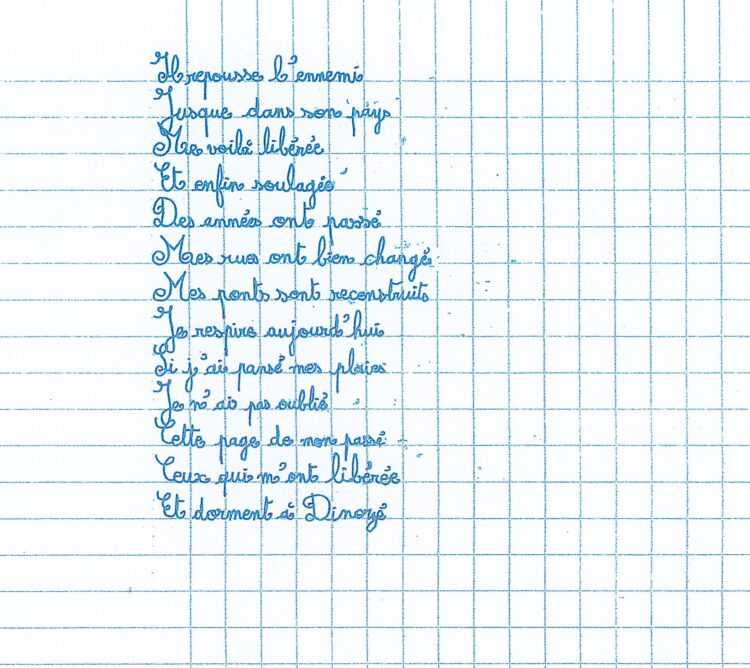 Il repousse l'ennemi
Jusque dans son pays
Me voilà libérée
Et enfin soulagée
Des années ont passé
Mes rues ont bien changé
Mes ponts sont reconstruits
Je respire aujourd'hui
Si j'ai pansé mes plaies
Je n'ai pas oublié
Cette page de mon passé
Ceux qui m'ont libérée
Et dorment à Dinozé